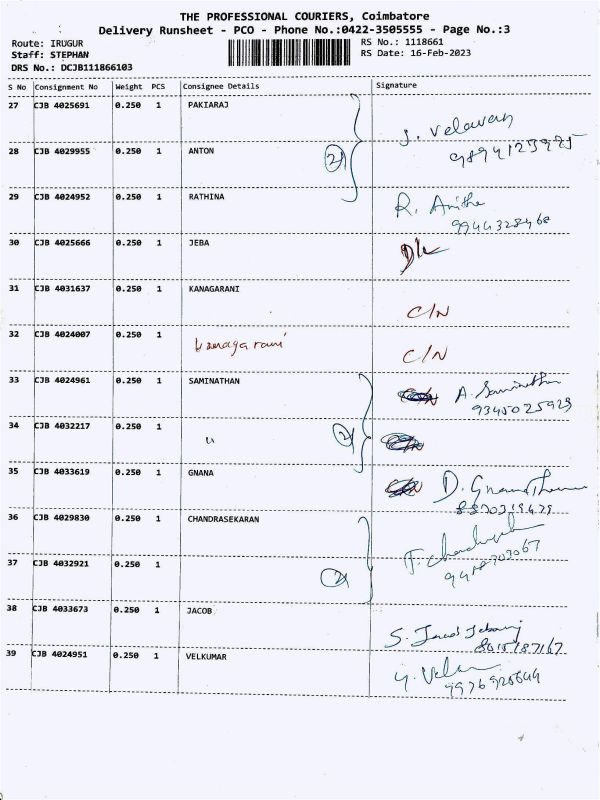 THE PROFESSIONAL COURIERS, Coimbatore
Delivery Runsheet - PCO - Phone No.:0422-3505555 - Page No.:3
Route: IRUGUR
RS No.: 1118661
Staff: STEPHAN
RS Date: 16-Feb-2023
DRS No.: DCJB111866103
S No Consignment No Weight PCS Consignee Details Signature
27 CJB 4025691 0.250 1 PAKIARAJ
J. Velavan
28 CJB 4029955 0.250 1 ANTON 2
9894123975
29 CJB 4024952 0.250 1 RATHINA R. Anitha
9944328468
30 CJB 4025666 0.250 1 JEBA D/L
31 CJB 4031637 0.250 1 KANAGARANI
C/N
32 CJB 4024007 0.250 1 kanagarani C/N
33 CJB 4024961 0.250 1 SAMINATHAN A. Saminathan
9345025929
34 CJB 4032217 0.250 1 " 2
35 CJB 4033619 0.250 1 GNANA D. Gnana
36 CJB 4029830 0.250 1 CHANDRASEKARAN
37 CJB 4032921 0.250 1 2
38 CJB 4033673 0.250 1 JACOB
S. Jacob
8015187167
39 CJB 4024951 0.250 1 VELKUMAR
9976925644